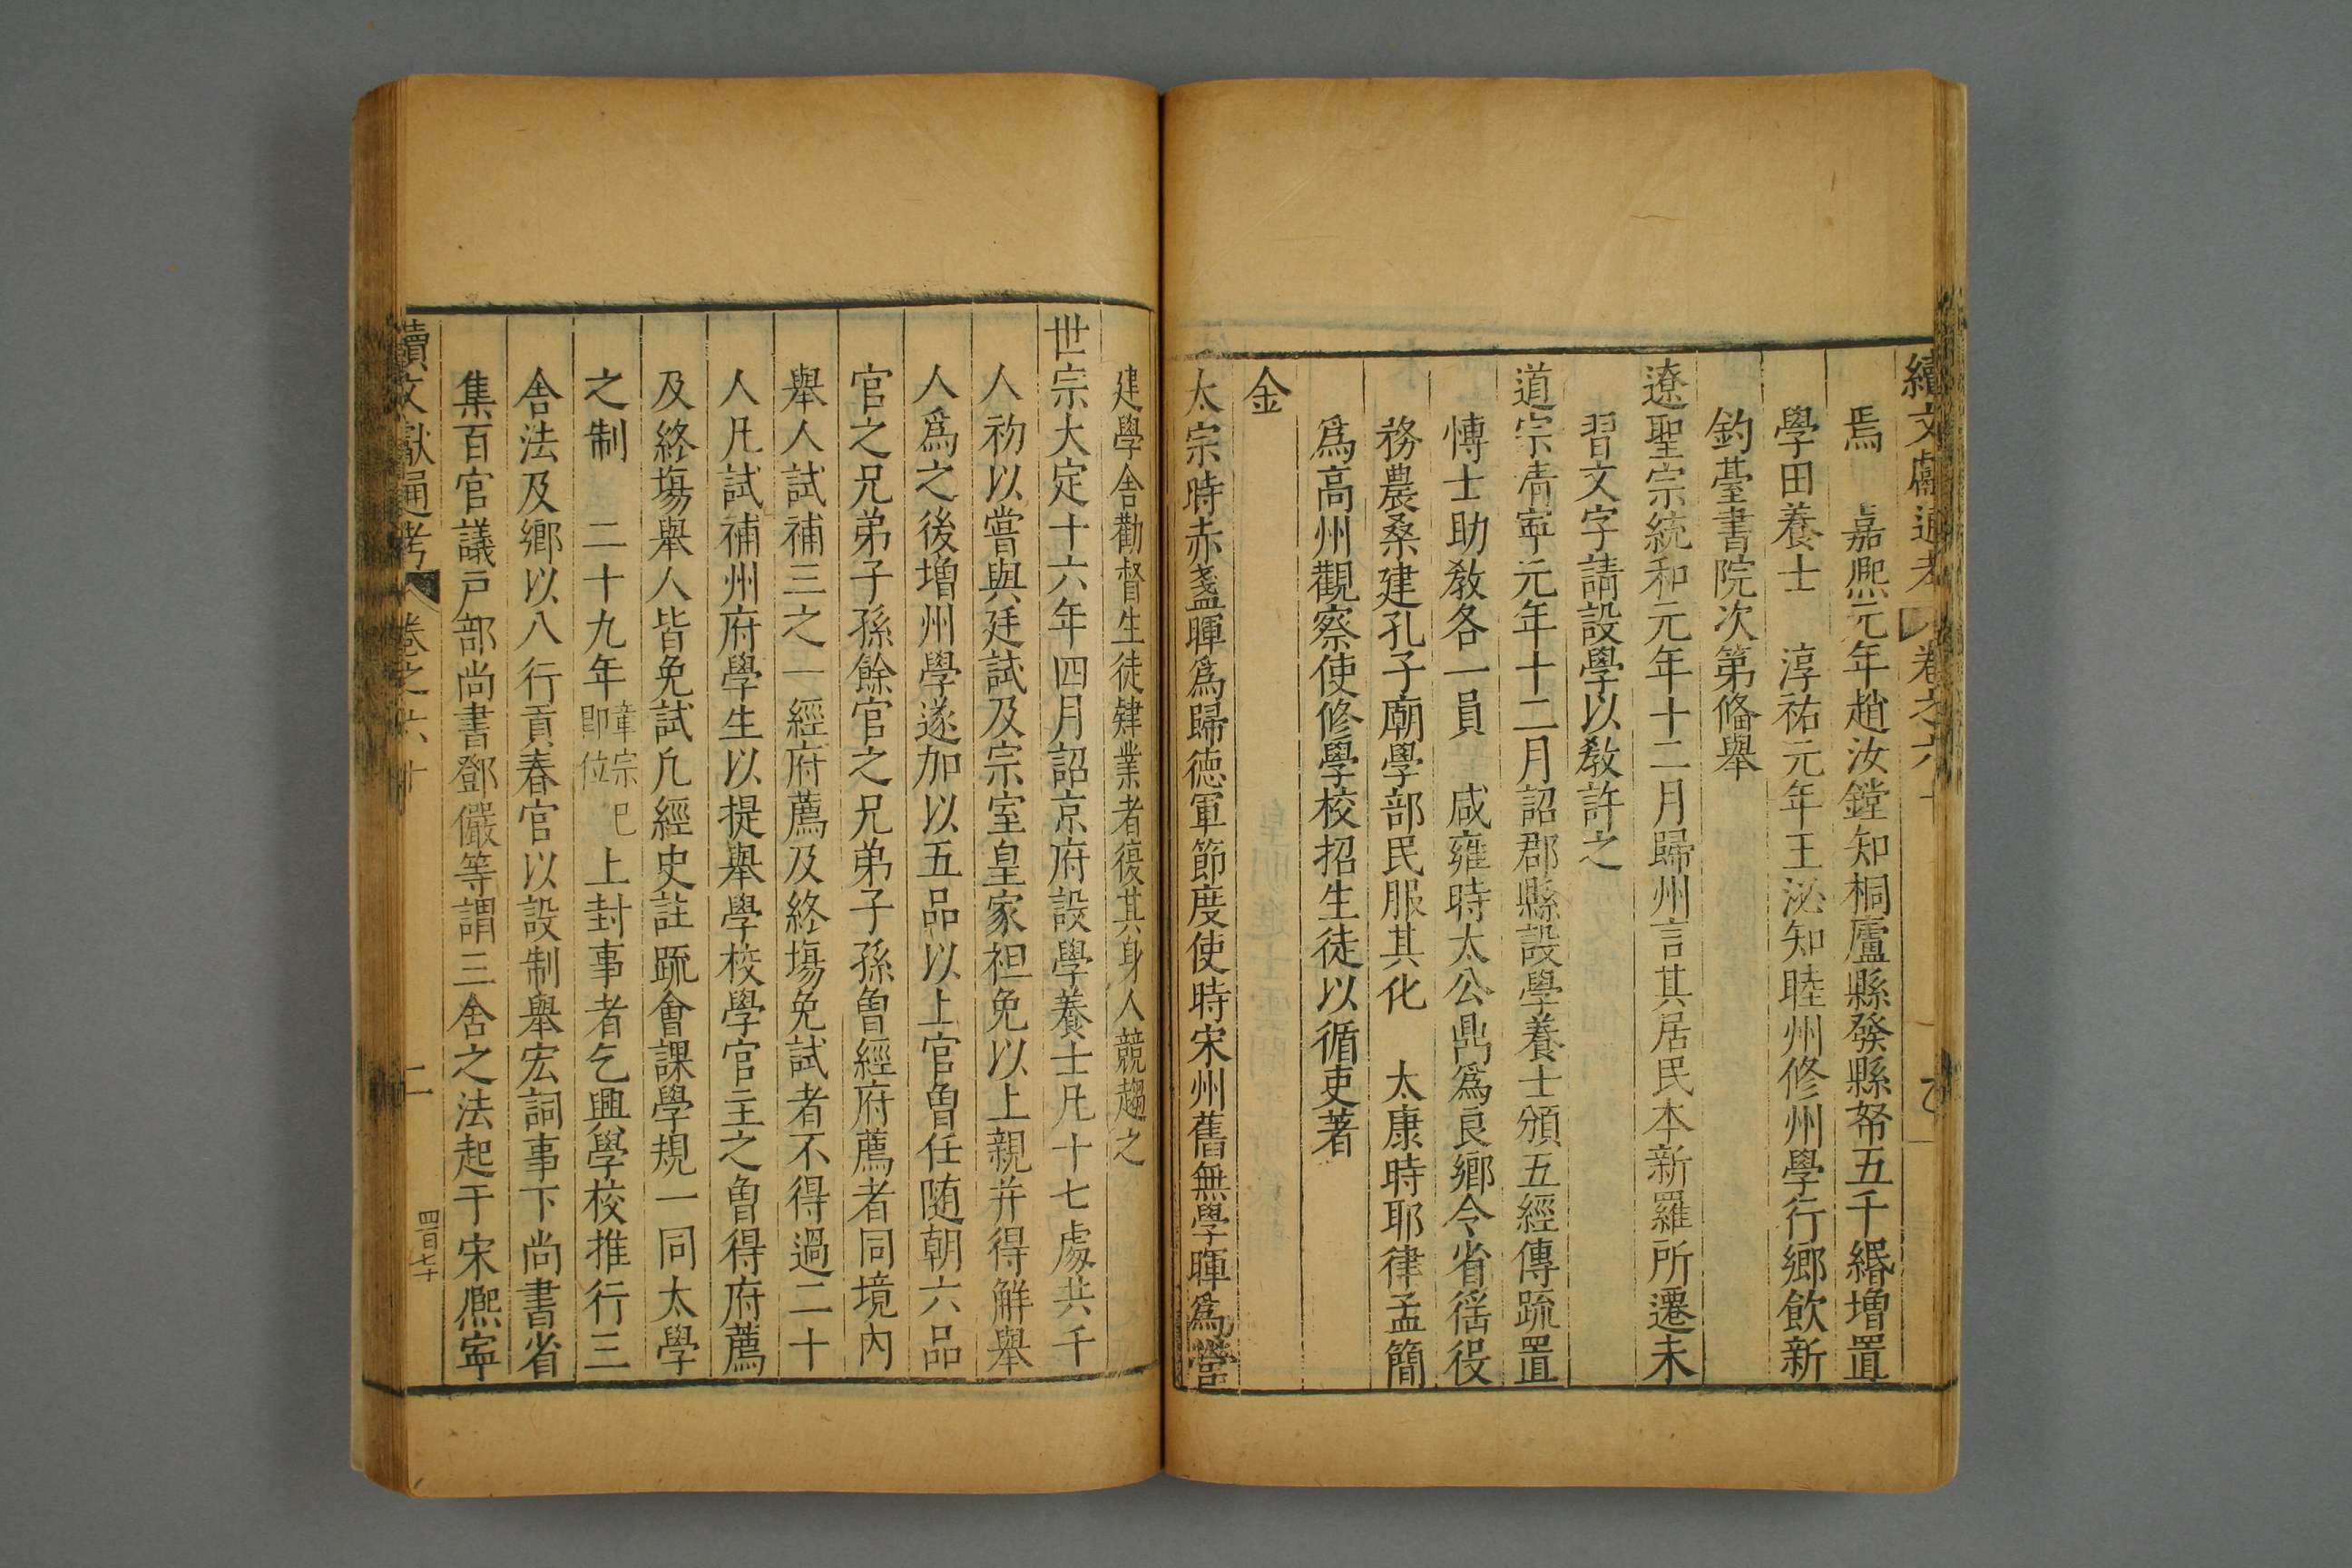 續文獻通考 卷之六十
焉 嘉熈元年趙汝鏜知桐廬縣發縣帑五千緡增置
學田養士 淳祐元年王泌知睦州修州學行鄉飲新
釣臺書院次第俻舉
遼聖宗統和元年十二月歸州言其居民本新羅所遷未
習文字請設學以教許之
道宗清寧元年十二月詔郡縣設學養士頒五經傳疏置
愽士助教各一員 咸雍時太公鼎爲良鄉令省徭役
務農桑建孔子廟學部民服其化 太康時耶律孟簡
爲高州觀察使修學校招生徒以循吏著
金
太宗時赤盞暉爲歸德軍節度使時宋州舊無學暉爲營
建學舎勸督生徒肄業者復其身人競趨之
世宗大定十六年四月詔京府設學養士凡十七處共千
人初以嘗與廷試及宗室皇家袒免以上親并得解舉
人爲之後增州學遂加以五品以上官曾任随朝六品
官之兄弟子孫餘官之兄弟子孫曾經府薦者同境內
舉人試補三之一經府薦及終塲免試者不得過二十
人凡試補州府學生以提舉學校學官主之曾得府薦
及終塲舉人皆免試凢經史註䟽會課學規一同太學
之制 二十九年章宗已即位上封事者乞興學校推行三
舎法及鄉以八行貢春官以設制舉宏詞事下尚書省
集百官議戸部尚書鄧儼等謂三舍之法起于宋熈寧
續文獻通考 卷之六十 二 四百七十